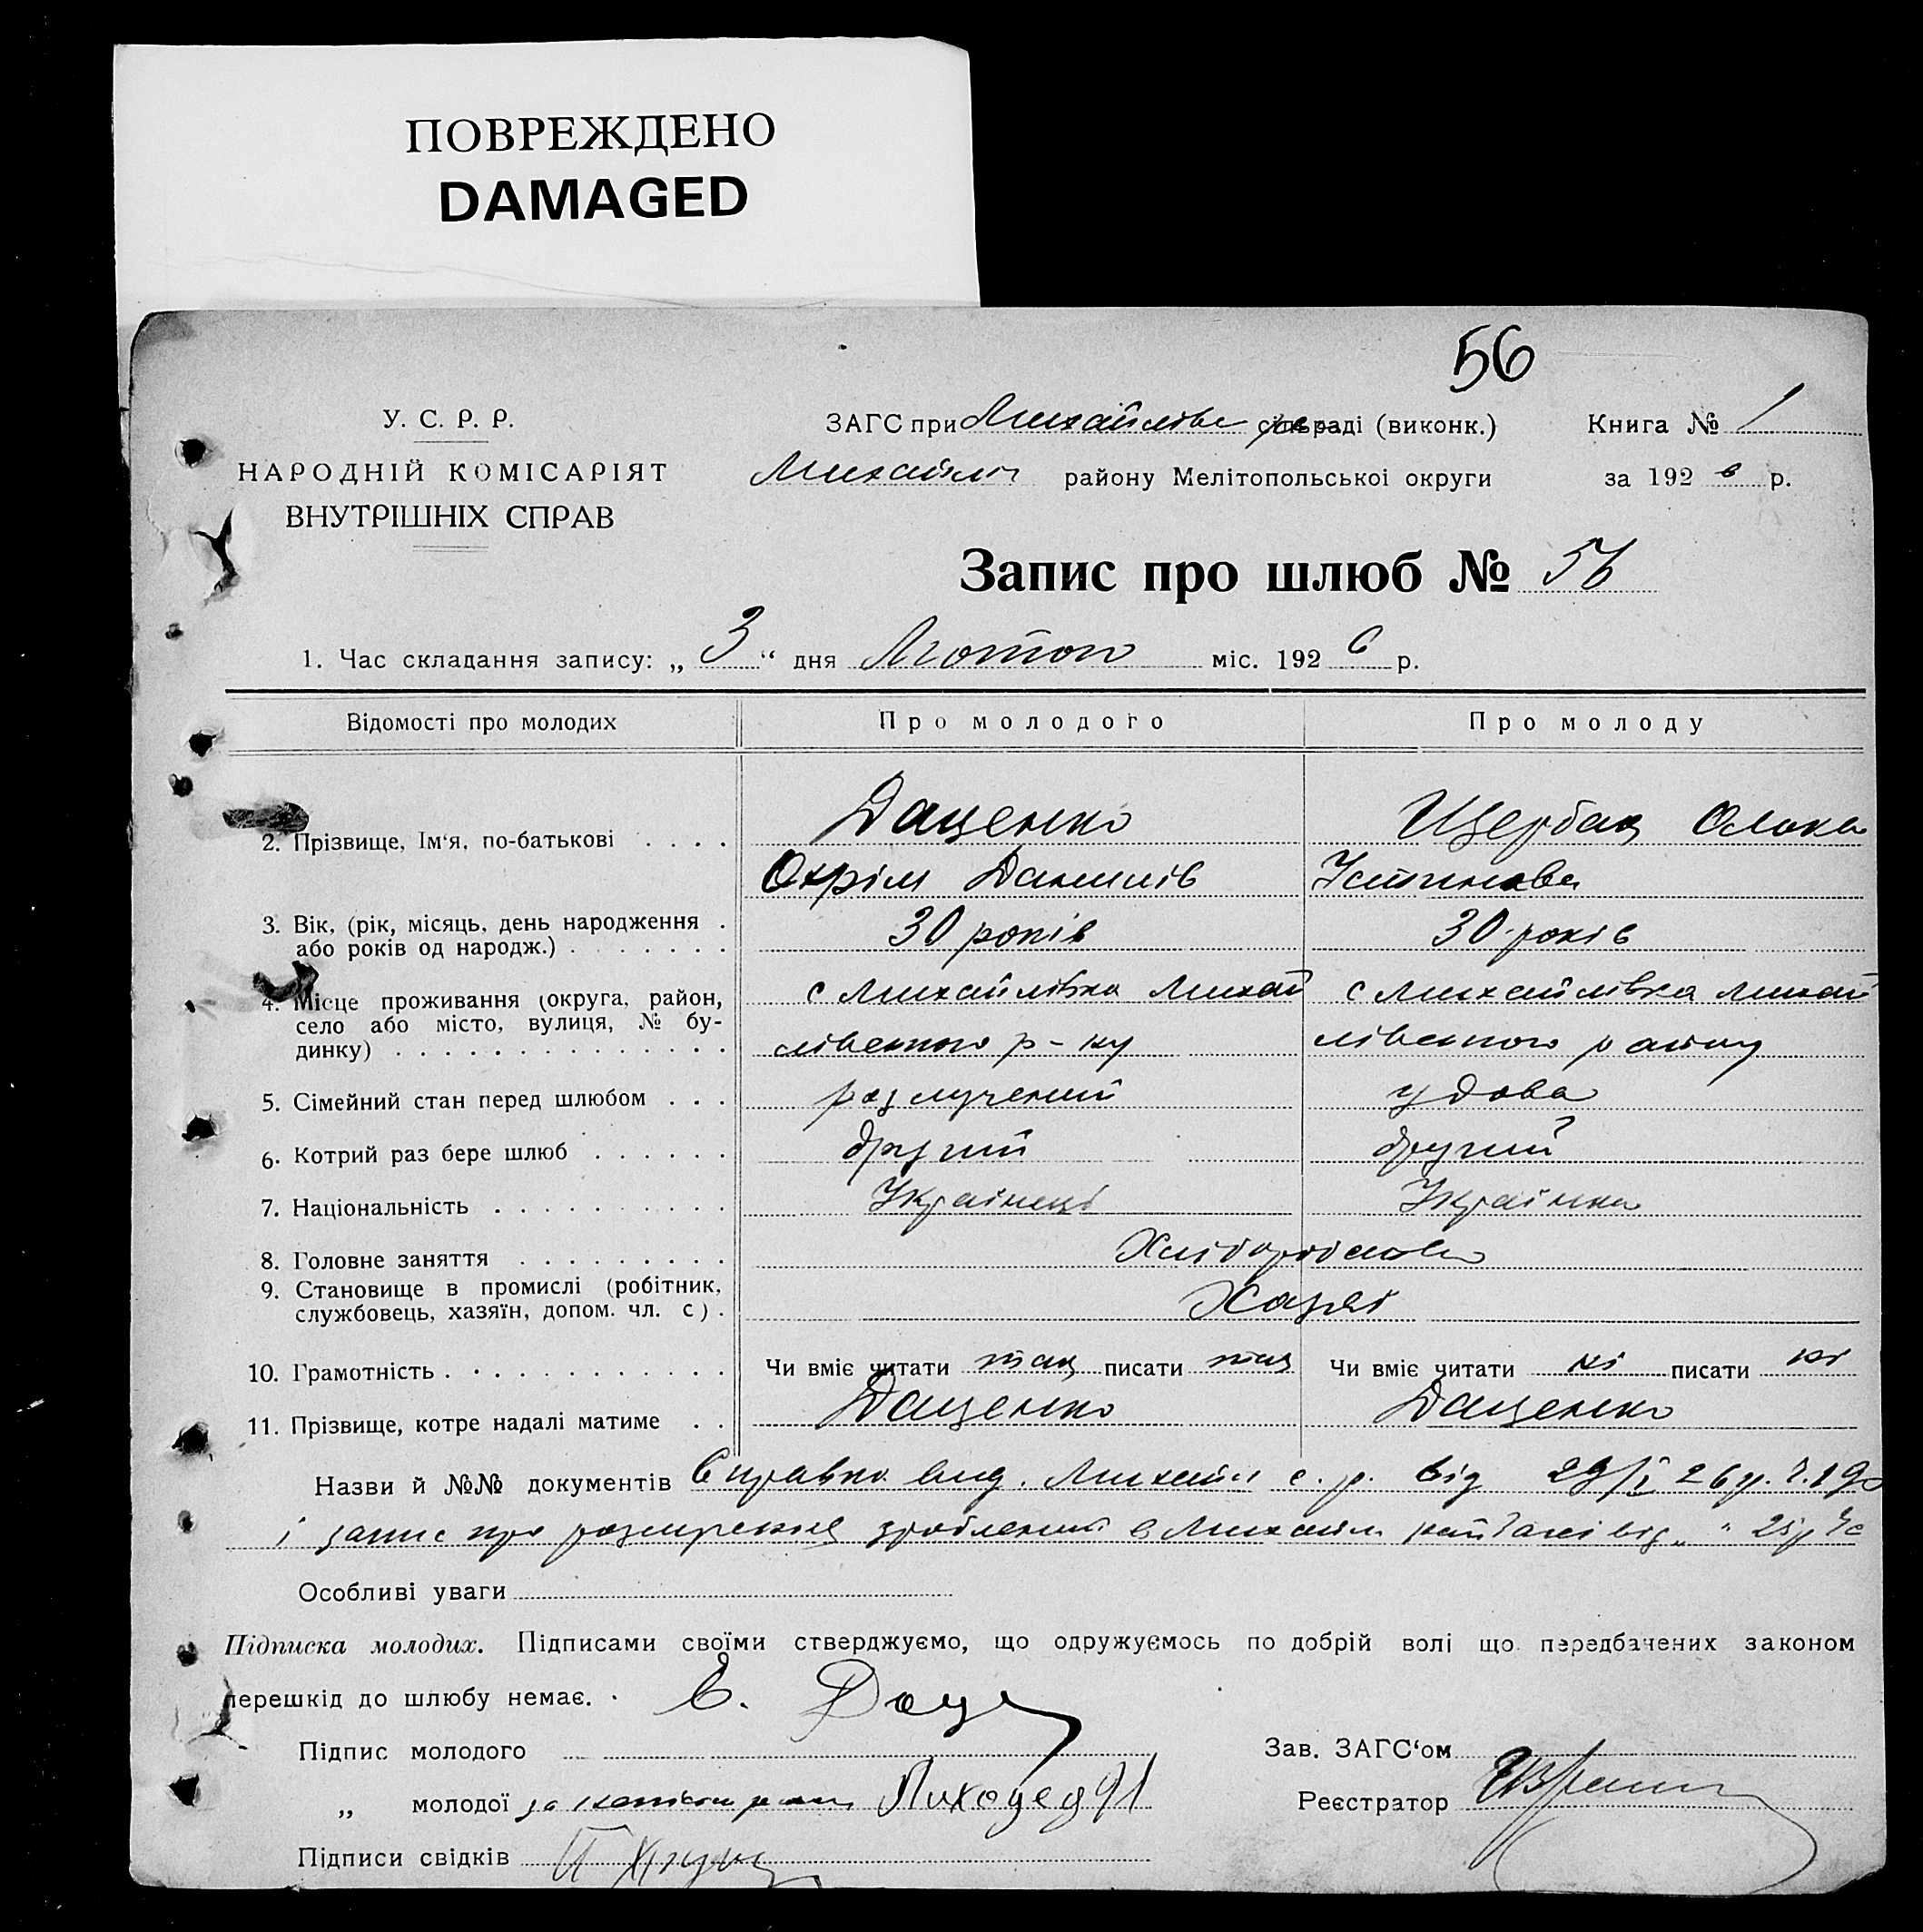 ПОВРЕЖДЕНО
DAMAGED
56
У. С. Р. Р.
ЗАГС при Михайлівс сільраді (виконк.) Книга № 1
НАРОДНІЙ КОМІСАРІЯТ
Михайлів району Мелітопольської округи за 1926 р.
ВНУТРІШНІХ СПРАВ
Запис про шлюб № 56
1. Час складання запису: „ 3 “ дня Лютого міс. 1926 р.
Відомості про молодих Про молодого Про молоду
2. Прізвище, Ім‘я, по-батькові . . . . Даценко Щербак Олена
Охрім Данилів Устинова
3. Вік, (рік, місяць, день народження .
або років од народж.) . . . . . . . 30 років 30 років
4. Місце проживання (округа, район, с Михайлівка Михай с Михайлівка Михай
село або місто, вулиця, № бу-
динку) . . . . . . . . . . . . . . лівського р-ну лівського району
5. Сімейний стан перед шлюбом . . . разлучений удова
6. Котрий раз бере шлюб . . . . . . другий другий
7. Національність . . . . . . . . . . Українець Українка
8. Головне заняття . . . . . . . . . Хліборобство
9. Становище в промислі (робітник,
службовець, хазяїн, допом. чл. с) . Хазяї
10. Грамотність . . . . . . . . . . . . Чи вміє читати так писати так Чи вміє читати ні писати ні
11. Прізвище, котре надалі матиме . . Даценко Даценко
Назви й №№ документів Справка вид. Михайл с. р. від 29/I 26 р.
і запис про розлучення зроблений в Михайл від „ “ 25 р
Особливі уваги
Підписка молодих. Підписами своїми стверджуємо, що одружуємось по добрій волі що передбачених законом
перешкід до шлюбу немає.
Підпис молодого Зав. ЗАГС‘ом
„ молодої за Реєстратор
Підписи свідків